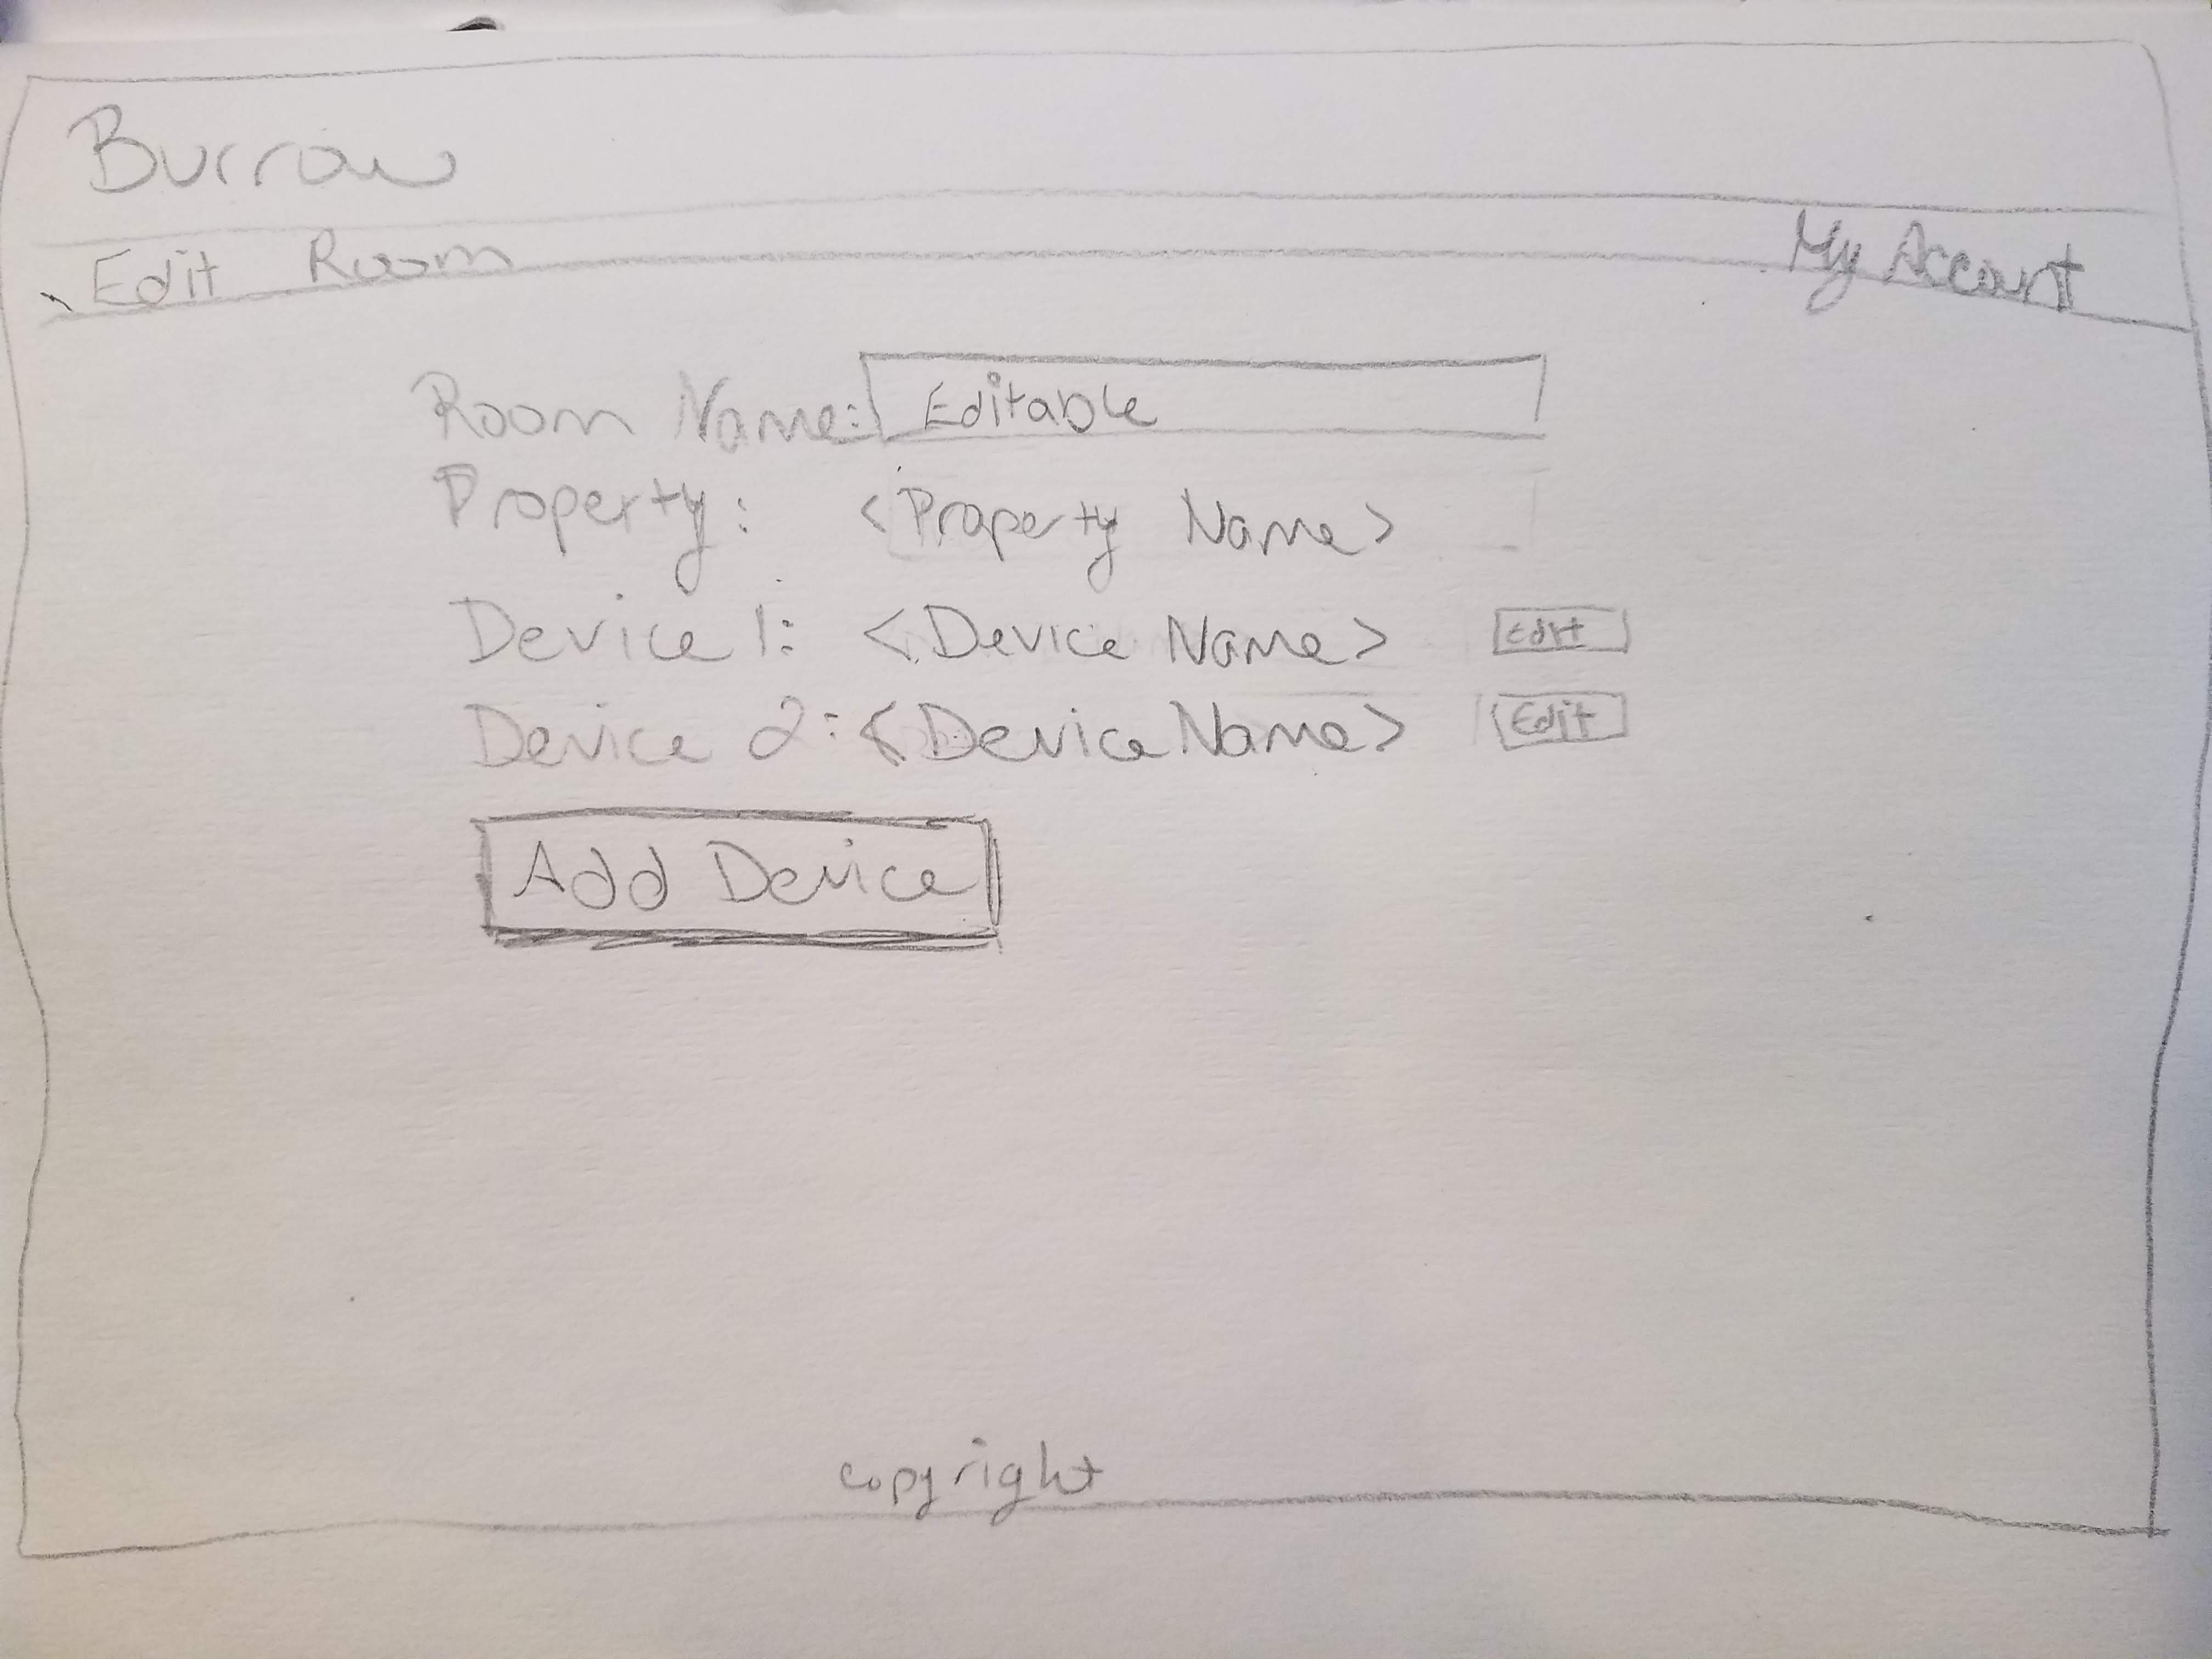 Burrow
Edit Room My Account
Room Name: Editable
Property: <Property Name>
Device 1: <Device Name> Edit
Device 2: <Device Name> Edit
Add Device
copyright